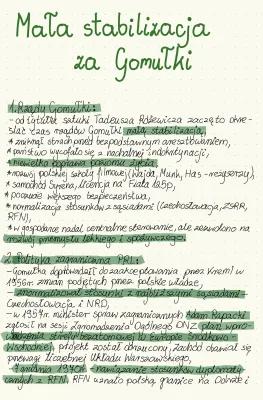 Mała stabilizacja
za Gomułki
1. Rządy Gomułki:
- od tytułu sztuki Tadeusza Różewicza zaczęto okre-
ślać czas rządów Gomułki małą stabilizacją,
* zniknął strach przed bezpodstawnym aresztowaniem,
* państwo wycofało się z nachalnej indoktrynacji,
* niewielka poprawa poziomu życia,
* rozwój polskiej szkoły filmowej (Wajda, Munk, Has - reżyserzy),
* samochód Syrena, licencja na Fiata 125p,
* poczucie większego bezpieczeństwa,
* normalizacja stosunków z sąsiadami (Czechosłowacja, ZSRR,
RFN),
* w gospodarce nadal centralne sterowanie, ale zezwolono na
rozwój przemysłu lekkiego i spożywczego.
2. Polityka zagraniczna PRL:
- Gomułka doprowadził do zaakceptowania przez Kreml w
1956r. zmian podjętych przez polskie władze,
- znormalizował stosunki z najbliższymi sąsiadami -
Czechosłowacją i NRD,
- w 1957r. minister spraw zagranicznych Adam Rapacki
zgłosił na sesji Zgromadzenia Ogólnego ONZ plan wpro-
wadzenia strefy bezatomowej w Europie Środkowo -
Wschodniej, projekt został odrzucony, Zachód obawiał się
przewagi liczebnej Układu Warszawskiego,
- 7 grudnia 1970r. - nawiązanie stosunków dyplomaty-
cznych z RFN. RFN uznało polską granicę na Odrze i